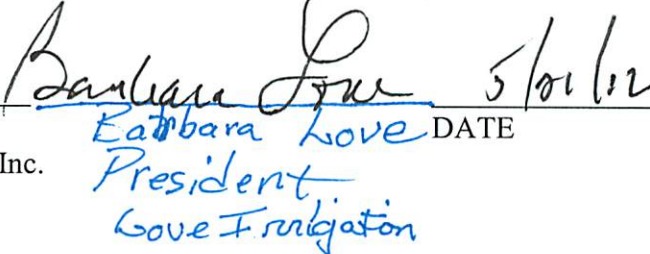 Barbara Love 5/21/12
Barbara Love DATE
Inc. President
Love Irrigation